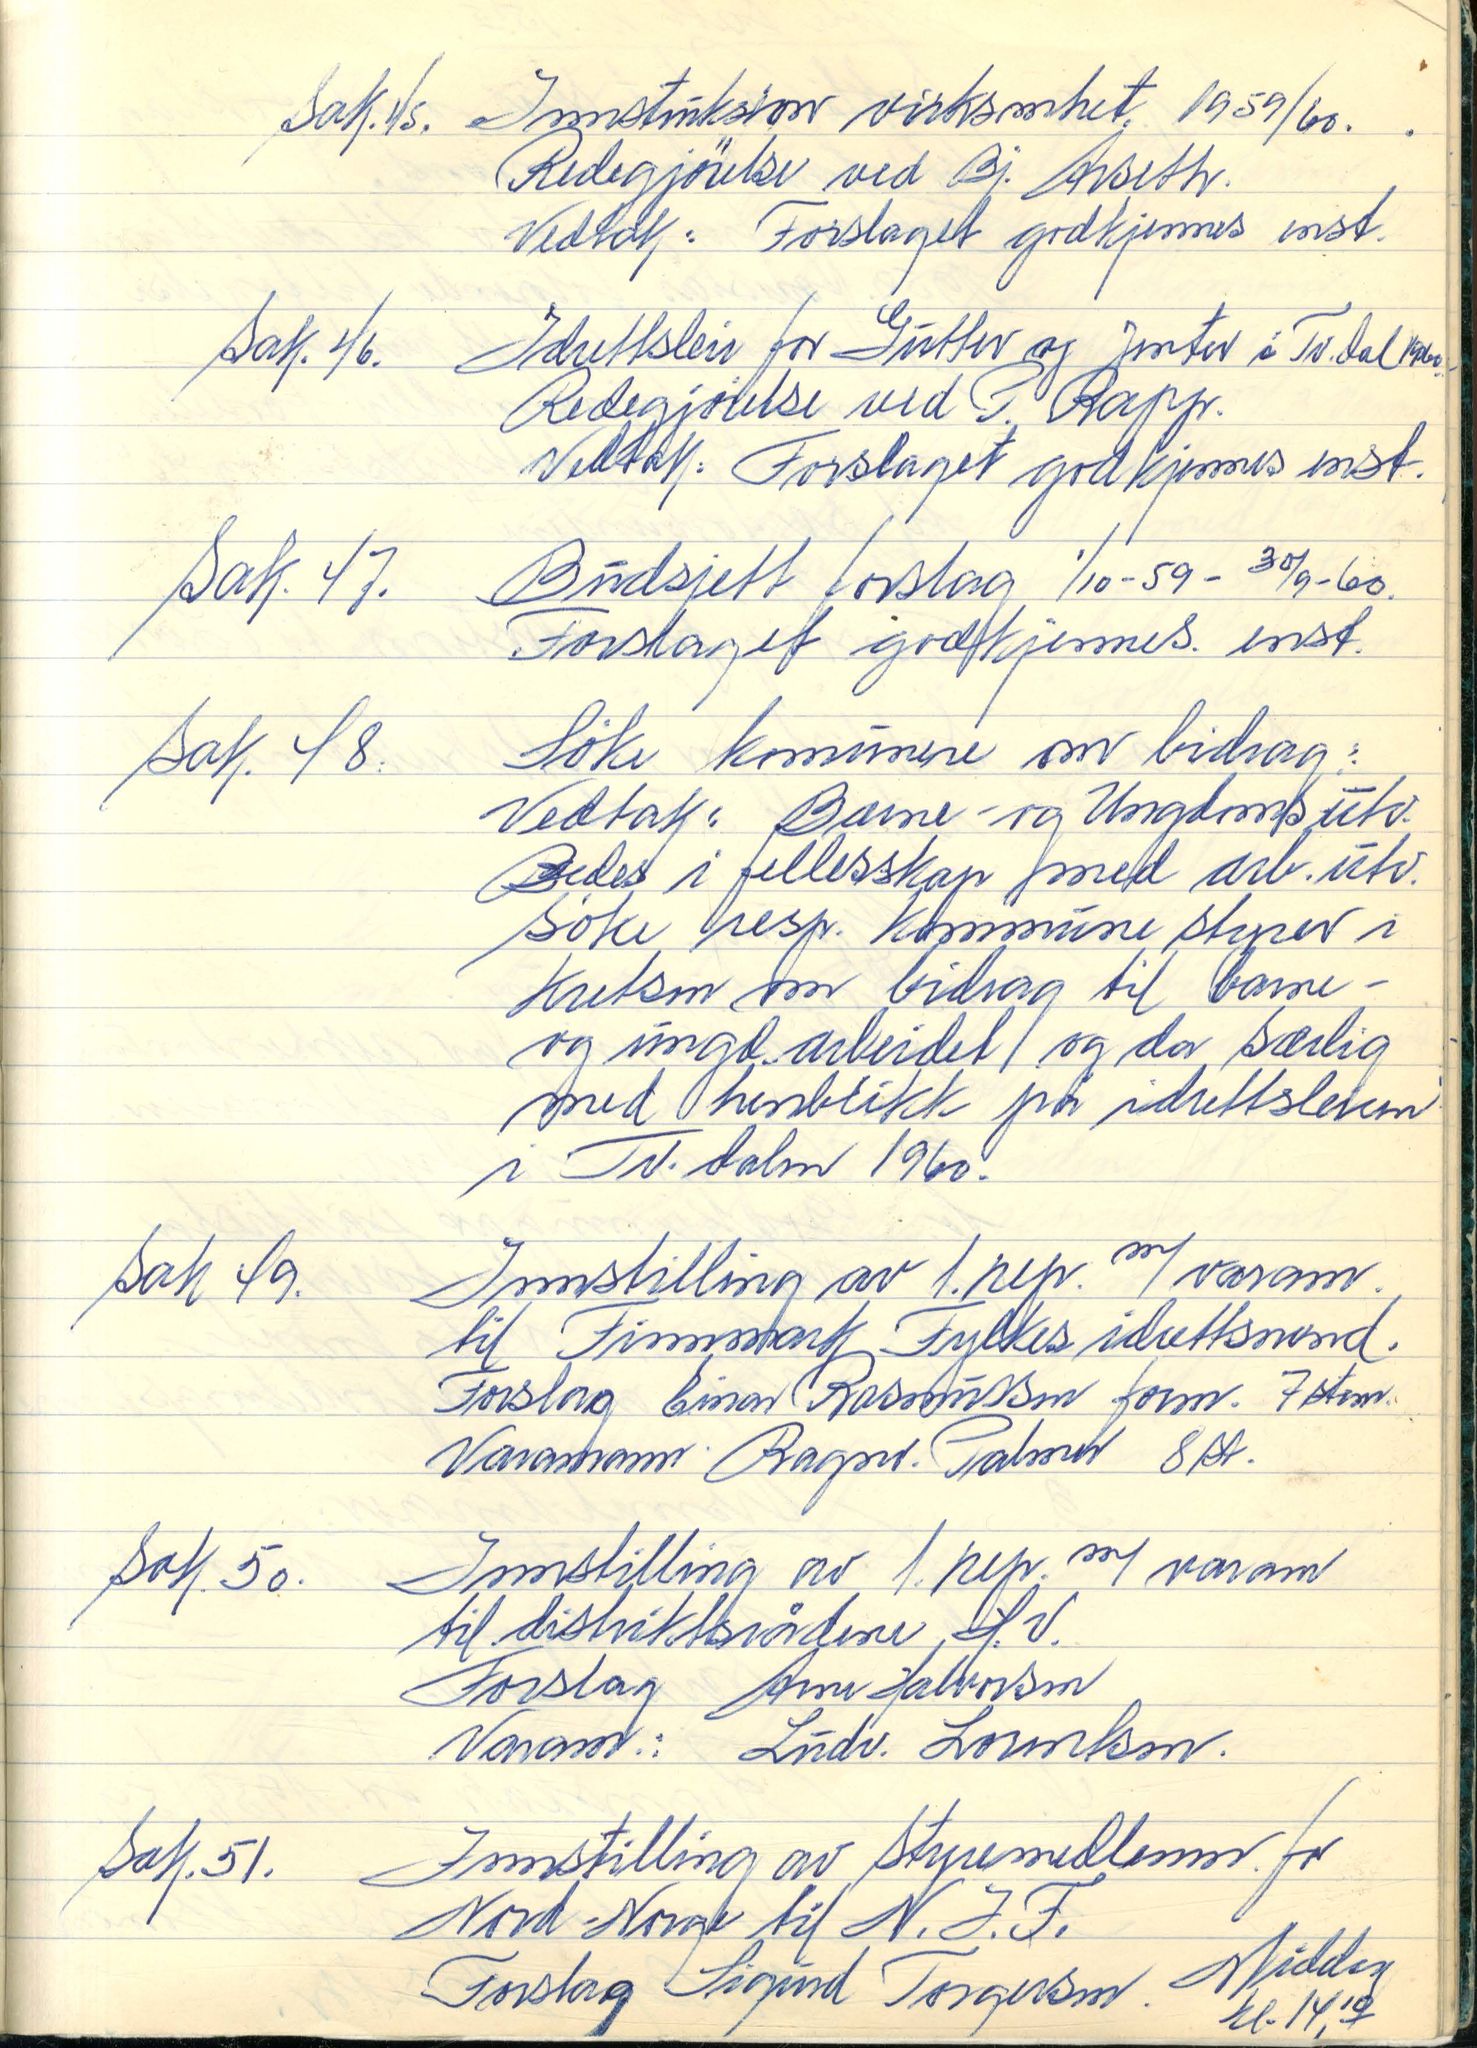 Sak. 45. Innstruksjon virksomhet. 1959/60.
Redegjörelse ved Bj. Arseth.
Vedtak: Forslaget godkjennes enst.
Sak. 46. Idrettsleir for Gutter og Jenter i Tv. dal 1960.
Redegjörelse ved T. Rapp.
Vedtak: Forslaget godkjennes enst.
Sak. 47. Budsjett forslag 1/10-59 - 30/9-60.
Forslaget godkjennes. enst.
Sak. 48. Söke kommunene om bidrag:
Vedtak: Barne- og Ungdoms utv.
Bedes i fellesskap med arb. utv.
söke resp. kommune styrer i
kretsen om bidrag til barne-
og ungd. arbeidet, og da særlig
med henblikk på idrettsleiren
i Tv. dalen 1960.
Sak 49. Innstilling av 1. rep. m/ varam.
til Finnmark Fylkes idrettsnemd.
Forslag Einar Rasmussen form. 7 stem.
Varamann. Ragnv. Palmer 8 st.
Sak. 50. Innstilling av 1. rep. m/ varam
til distriktsrådene
Forslag Arne Halvorsen
Varam.: Ludv. Lorentsen.
Sak. 51. Innstilling av styremedlemm. for
Nord-Norge til N.I.F.
Forslag Sigurd Torgersen. Middag
kl. 14,10